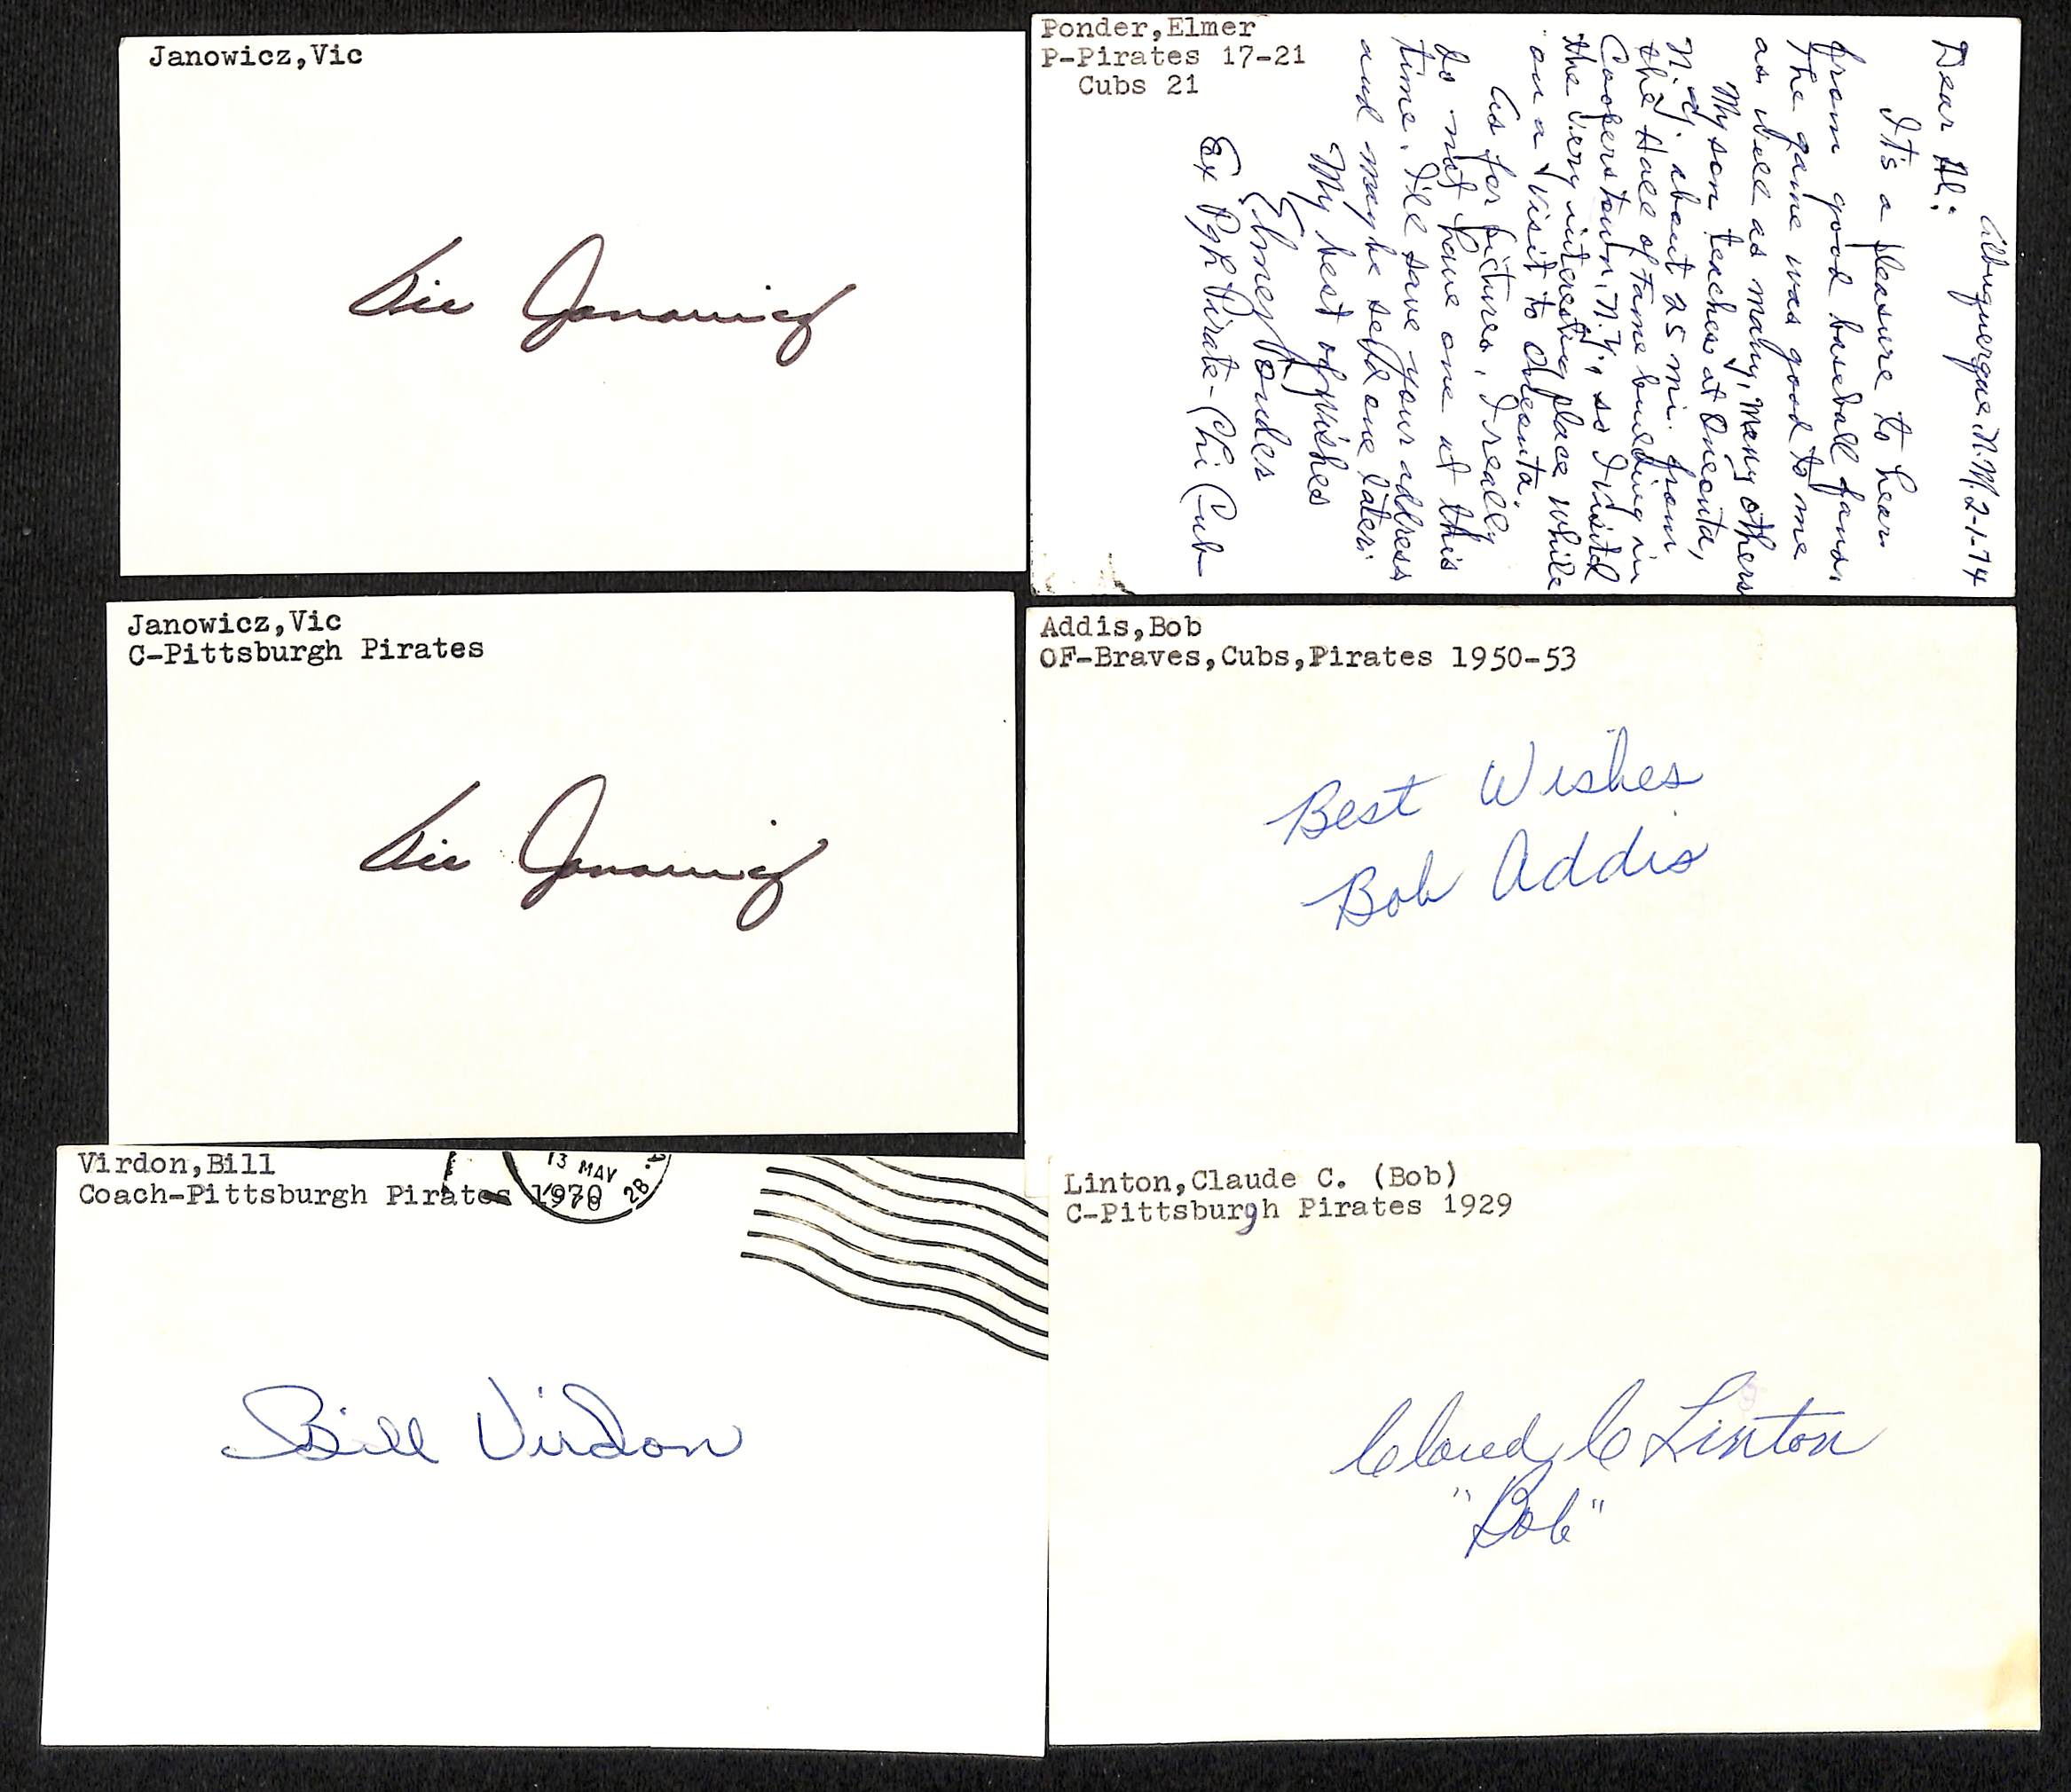 Janowicz,Vic
Vic Janowicz
Ponder,Elmer
P-Pirates 17-21
Cubs 21
Albuquerque, N.M. 2-1-74
Dear Al:
It's a pleasure to hear
from good baseball fans.
The game was good to me
as well as many, many others
My son teaches at Oneonta,
N.Y. about 25 mi. from
the Hall of Fame building in
Cooperstown, N.Y., so I visited
the very interesting place while
on a visit to Oneonta.
As for pictures, I really
do not have one at this
time. I'll save your address
and maybe send one later.
My best of wishes
Elmer Ponder
Ex Pgh Pirate - Chi Cub
Janowicz,Vic
C-Pittsburgh Pirates
Vic Janowicz
Addis,Bob
OF-Braves,Cubs,Pirates 1950-53
Best Wishes
Bob Addis
Virdon,Bill
Coach-Pittsburgh Pirates 1970
13 MAY
28
Bill Virdon
Linton,Claude C. (Bob)
C-Pittsburgh Pirates 1929
Claud C Linton
"Bob"